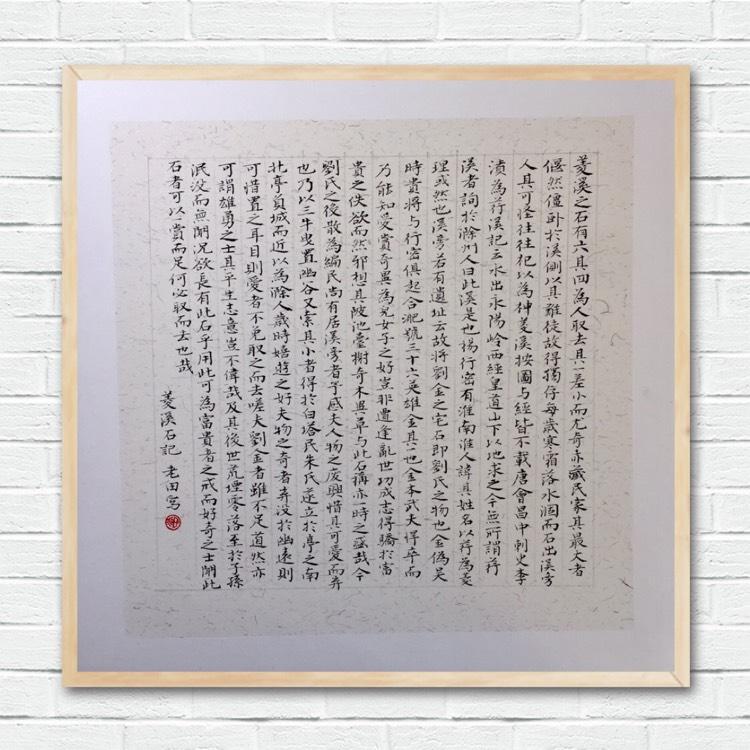 菱溪之石有六其四為人取去其一差小而尤奇亦藏民家其最大者
偃然僵卧於溪側以其難徙故得獨存每歲寒霜落水涸而石出溪旁
人其可怪往往祀以為神菱溪按圖與經皆不載唐會昌中刺史李
濆為荇溪記云水出永陽岭西經皇道山下以地求之今無所謂荇
溪者詢於滁州人曰此溪是也楊行密有淮南淮人諱其姓名以荇為菱
理或然也溪旁若有遺址云故將劉金之宅石即劉氏之物也金偽吳
時貴將與行密俱起合淝號三十六英雄金其一也金本武夫悍卒而
乃能知愛賞奇異為兒女子之好豈非遭逢亂世功成志得驕於富
貴之佚欲而然邪想其陂池臺榭奇木異草与此石稱亦一時之盛哉今
劉氏之後散為編民尚有居溪旁者予感夫人物之廢興惜其可愛而弃
也乃以三牛曳置幽谷又索其小者得於白塔民朱氏遂立於亭之南
北亭負城而近以為滁人歲時嬉遊之好夫物之奇者弃沒於幽遠則
可惜置之耳目則愛者不免取之而去嗟夫劉金者雖不足道然亦
可謂雄勇之士其平生志意豈不偉哉及其後世荒堙零落至於子孫
泯沒而無聞况欲長有此石乎用此可為富貴者之戒而好奇之士聞此
石者可以一賞而足何必取而去也哉
菱溪石記 老田寫